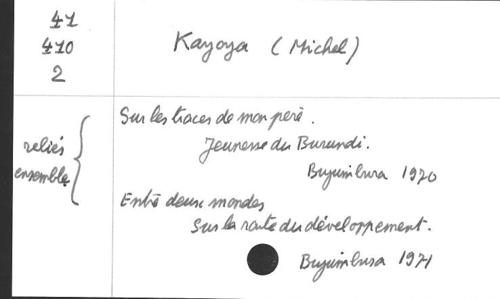 41
410
2
Kayoya (Michel)
reliés
ensemble
Sur les traces de mon père.
Jeunesse du Burundi.
Bujumbura 1970
Entre deux mondes
Sur la route du développement.
Bujumbura 1971